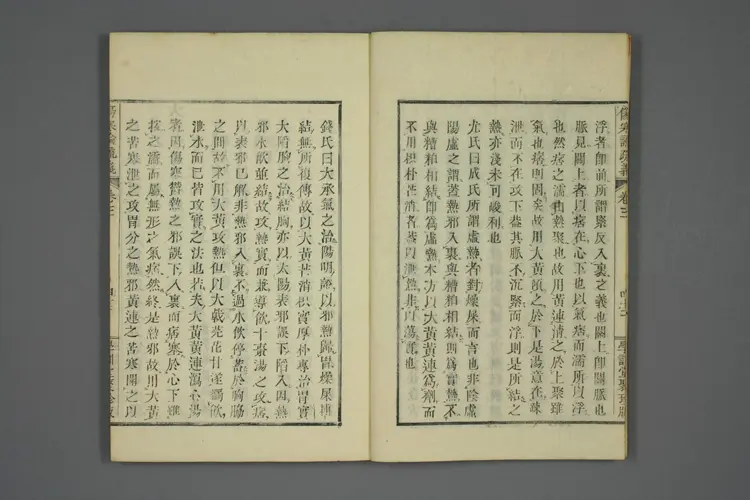 浮者即前所謂緊反入裏之義也關上卽關脈也
脈見關上者以病在心下也以氣痞而濡所以浮
也然痞之濡由熱聚也故用黃連清之於上聚雖
氣也痞則固矣故用大黃傾之於下是湯意在疎
泄而不在攻下葢其脈不沉緊而浮則是所結之
熱亦淺未可峻利也
尤氏曰成氏所謂虛熱者對燥屎而言也非陰虛
陽虛之謂葢熱邪入裏與糟粕相結則爲實熱不
與糟粕相結卽爲虛熱本方以大黃黃連爲劑而
不用枳朴芒硝者葢以泄熱非以蕩實也
錢氏曰大承氣之治陽明 以邪熱歸胃燥屎
結無所復傳故以大黃芒消枳實厚朴專治胃實
大陷胸之治結胸亦以太陽表邪誤下陷入因熱
邪水飮並結故攻熱實而兼導飮十棗湯之攻病
以表邪已解非熱邪入裏不過水飮停蓄於胸脇
之間故不用大黃攻熱但以大戟芫花甘遂蠲飮
泄水而已皆攻實之法也若夫大黃黃連瀉心湯
者因傷寒鬱熱之邪誤下入裏而痞塞於心下雖
按之濡而屬無形之氣痞然終是熱邪故用大黃
之苦寒泄之以攻胃分之熱邪黃連之苦寒開之以
傷寒論疏義
卷三